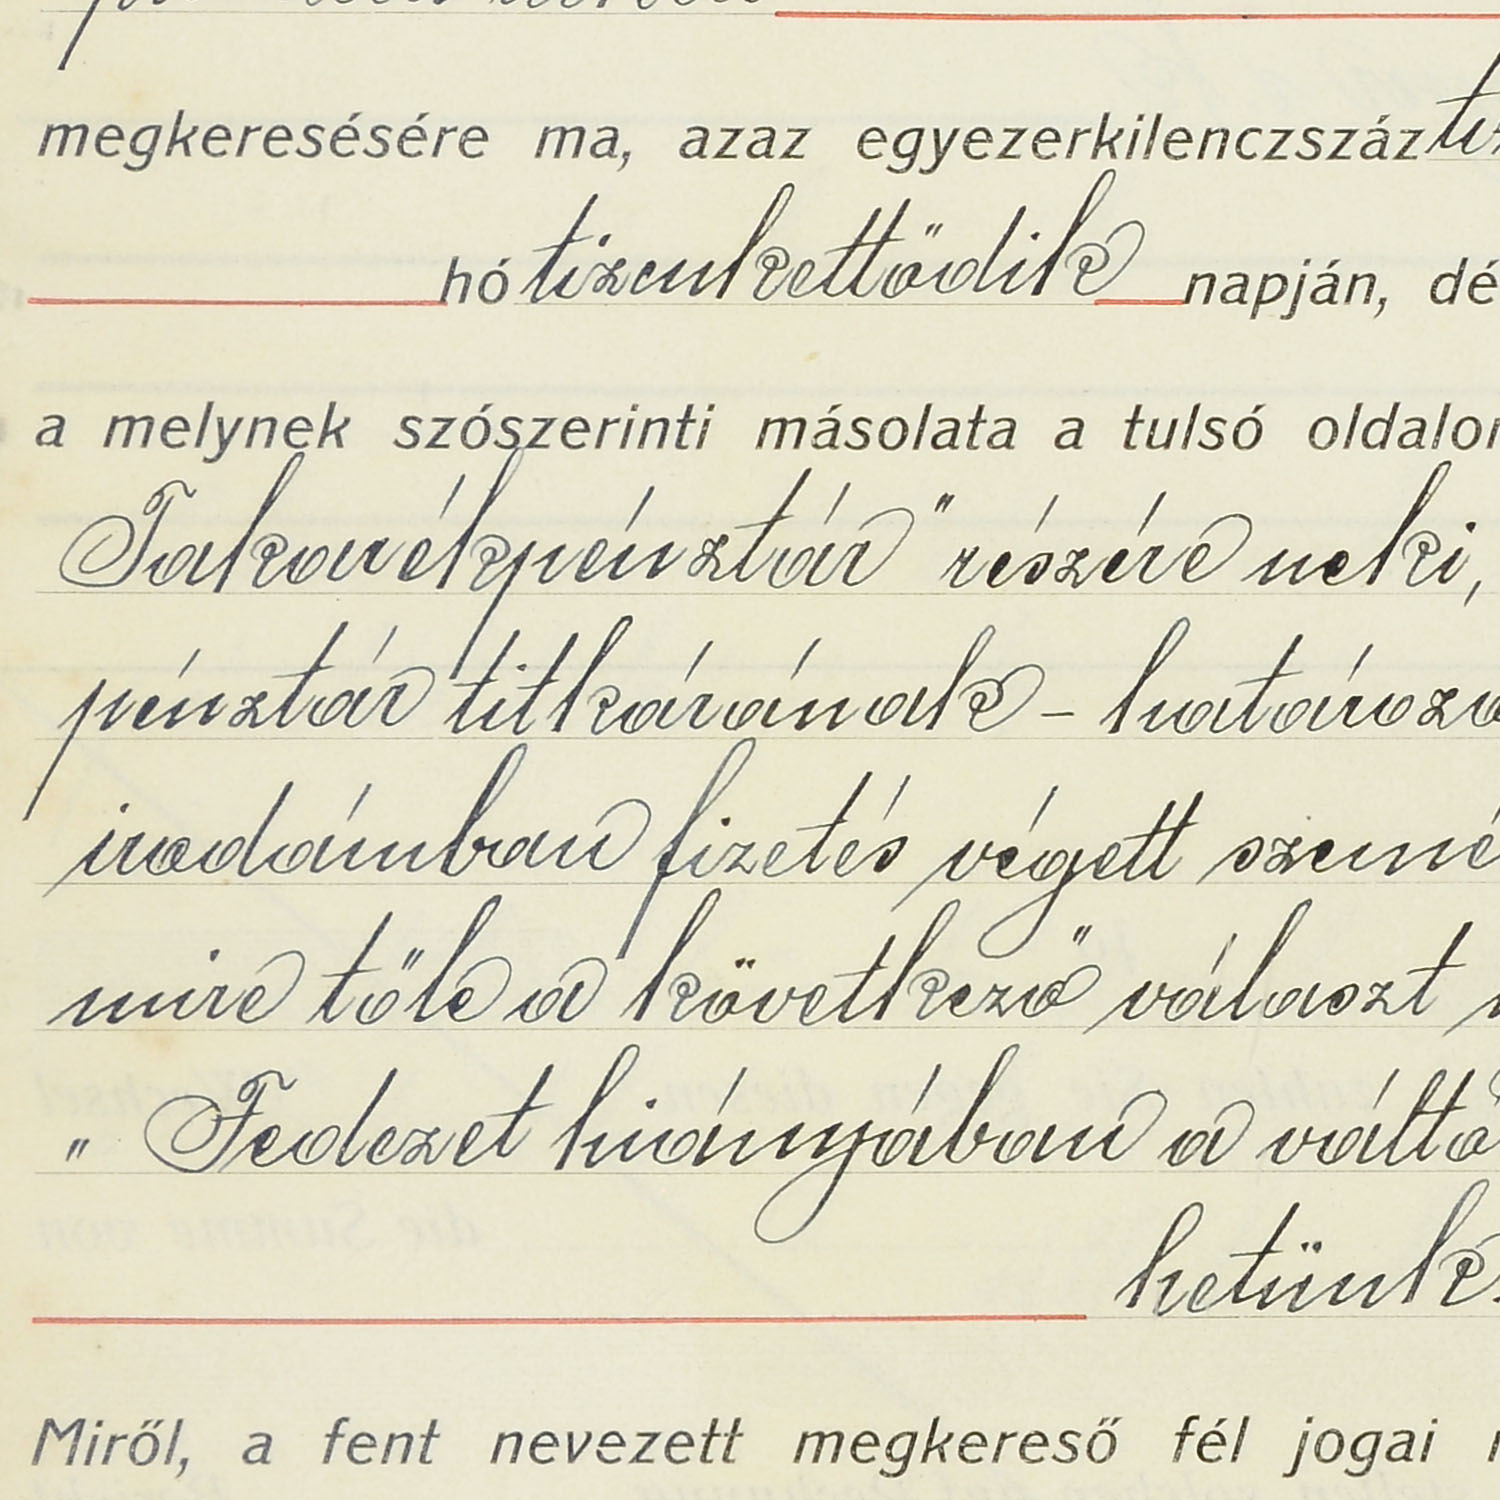 megkeresésére ma, azaz egyezerkilenczszáz
hó tizenkettödik napján, dé
a melynek szószerinti másolata a tulsó oldalon
Takarékpénztár" részére neki,
pénztár titkárának – határozo
irodámban fizetés végett szemé
mire tőle a következő választ
„Fedezet hiányában a váltó
hetünk.
Miről, a fent nevezett megkereső fél jogai